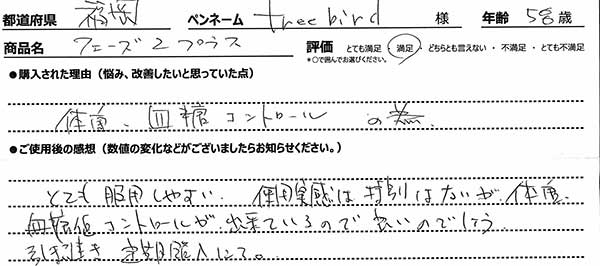 都道府県 福岡 ペンネーム treebird 様 年齢 58歳
商品名 フェーズ2プラス 評価 とても満足・満足・どちらとも言えない・不満足・とても不満足
*○で囲んでお選びください。
●購入された理由（悩み、改善したいと思っていた点）
体重、血糖コントロールの為。
●ご使用後の感想（数値の変化などがございましたらお知らせください。）
とても服用しやすい。使用実感は特別はないが、体重、
血糖値コントロールが出来ているので良いのでしょう。
引き続き定期購入にて。